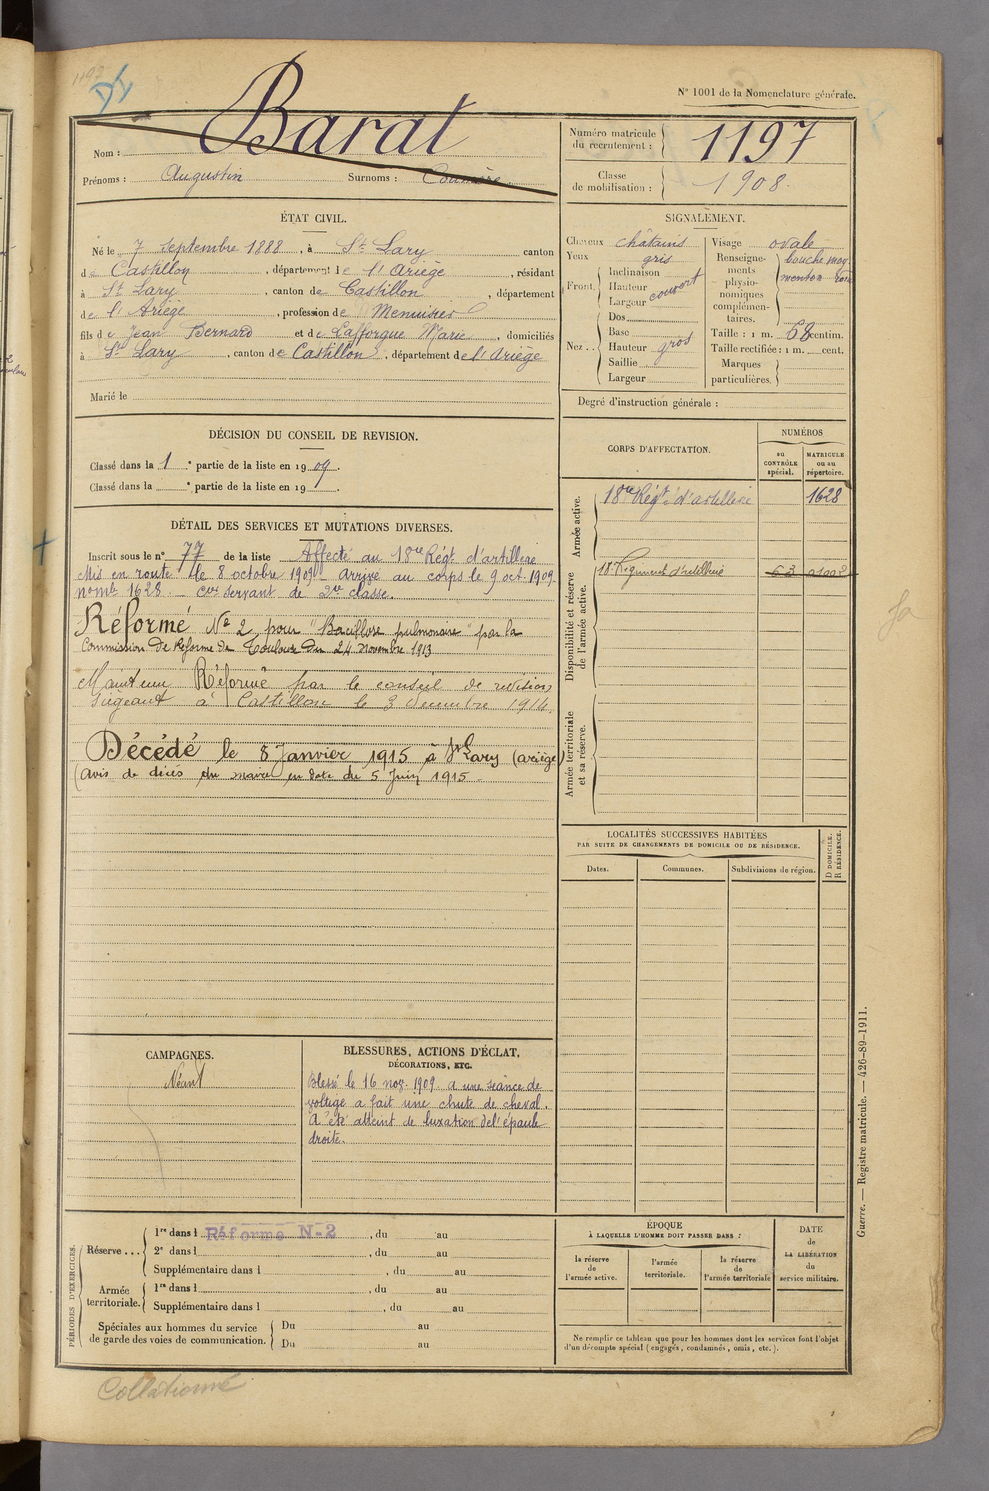 1197
N° 1001 de la Nomenclature générale.
Nom : Barat
Prénoms : Augustin Surnoms :
Numéro matricule du recrutement : 1197
Classe de mobilisation : 1908.
ÉTAT CIVIL.
Né le 7 Septembre 1888, à St Lary canton
de Castillon, département de l'Ariège, résidant
à St Lary, canton de Castillon, département
de l'Ariège, profession de Menuisier
fils de Jean Bernard et de Lafforgue Marie, domiciliés
à St Lary, canton de Castillon, département de l'Ariège
Marié le
SIGNALEMENT.
Cheveux châtains
Yeux gris
Front. Inclinaison
Hauteur couvert
Largeur
Nez... Dos
Base
Hauteur gros
Saillie
Largeur
Visage ovale
Renseignements physionomiques complémentaires. bouche moy.
menton rond
Taille : 1 m. 68 centim.
Taille rectifiée : 1 m. cent.
Marques particulières.
Degré d'instruction générale :
DÉCISION DU CONSEIL DE REVISION.
Classé dans la 1e partie de la liste en 1909.
Classé dans la e partie de la liste en 19 .
CORPS D'AFFECTATION.
NUMÉROS
au CONTRÔLE spécial.
MATRICULE ou au répertoire.
Armée active.
18me Régt d'artillerie 1628
Disponibilité et réserve de l'armée active.
18e Régiment d'artillerie 63 01002
Armée territoriale et sa réserve.
DÉTAIL DES SERVICES ET MUTATIONS DIVERSES.
Inscrit sous le n° 77 de la liste Affecté au 18me Régt d'artillerie
Mis en route le 8 octobre 1909 - Arrivé au corps le 9 oct. 1909.
nomé 1628. - Cer servant de 2me classe.
Réformé No 2 pour "Bacillose pulmonaire" par la
Commission de Réforme de Toulouse du 24 novembre 1913
Maintenu Réformé par le conseil de révision
siégeant à Castillon le 3 décembre 1914.
Décédé le 8 Janvier 1915 à St Lary (Ariège)
(avis de décès du maire en date du 5 Juin 1915
LOCALITÉS SUCCESSIVES HABITÉES
PAR SUITE DE CHANGEMENTS DE DOMICILE OU DE RÉSIDENCE.
Dates.
Communes.
Subdivisions de région.
D DOMICILE.
R RÉSIDENCE.
CAMPAGNES.
Néant
BLESSURES, ACTIONS D'ÉCLAT,
DÉCORATIONS, ETC.
Blessé le 16 nov. 1909 a une séance de
voltige a fait une chute de cheval.
A été atteint de luxation de l'épaule
droite.
PÉRIODES D'EXERCICES.
Réserve... 1re dans l Réformé N-2, du au
2e dans l , du au
Supplémentaire dans l , du au
Armée territoriale. 1re dans l , du au
Supplémentaire dans l , du au
Spéciales aux hommes du service de garde des voies de communication. Du au
Du au
ÉPOQUE
À LAQUELLE L'HOMME DOIT PASSER DANS :
la réserve de l'armée active.
l'armée territoriale.
la réserve de l'armée territoriale
DATE de LA LIBÉRATION du service militaire.
Ne remplir ce tableau que pour les hommes dont les services font l'objet
d'un décompte spécial (engagés, condamnés, omis, etc.).
Guerre. — Registre matricule. — 426-89-1911.
Collationné